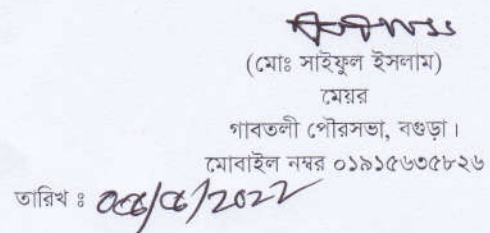 (মোঃ সাইফুল ইসলাম)
মেয়র
গাবতলী পৌরসভা, বগুড়া।
মোবাইল নম্বর ০১৯১৫৬৩৫৮২৬
তারিখ ঃ /2022